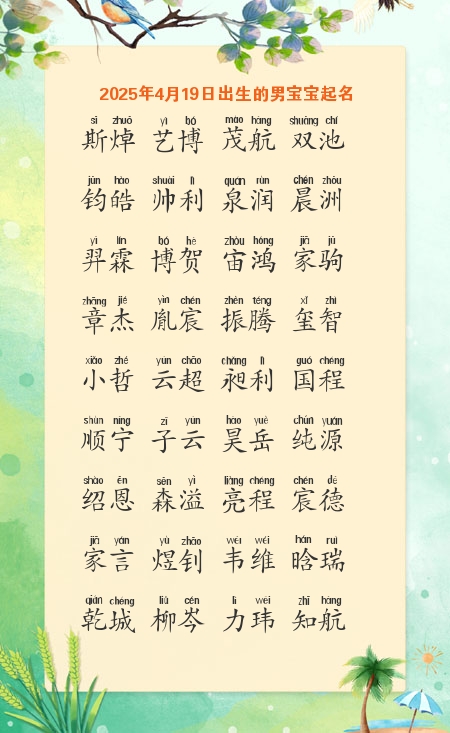 2025年4月19日出生的男宝宝起名
sī zhuō yì bó mào háng shuāng chí
斯焯 艺博 茂航 双池
jūn hào shuài lì quán rùn chén zhōu
钧皓 帅利 泉润 晨洲
yì lín bó hè zhòu hóng jiā jū
羿霖 博贺 宙鸿 家驹
zhāng jié yìn chén zhèn téng xǐ zhì
章杰 胤宸 振腾 玺智
xiǎo zhé yún chāo chǎng lì guó chéng
小哲 云超 昶利 国程
shùn níng zǐ yún hào yuè chún yuán
顺宁 子云 昊岳 纯源
shào ēn sēn yì liàng chéng chén dé
绍恩 森溢 亮程 宸德
jiā yán yù zhāo wéi wéi hán ruì
家言 煜钊 韦维 晗瑞
qián chéng liǔ cén lì wěi zhī háng
乾城 柳岑 力玮 知航